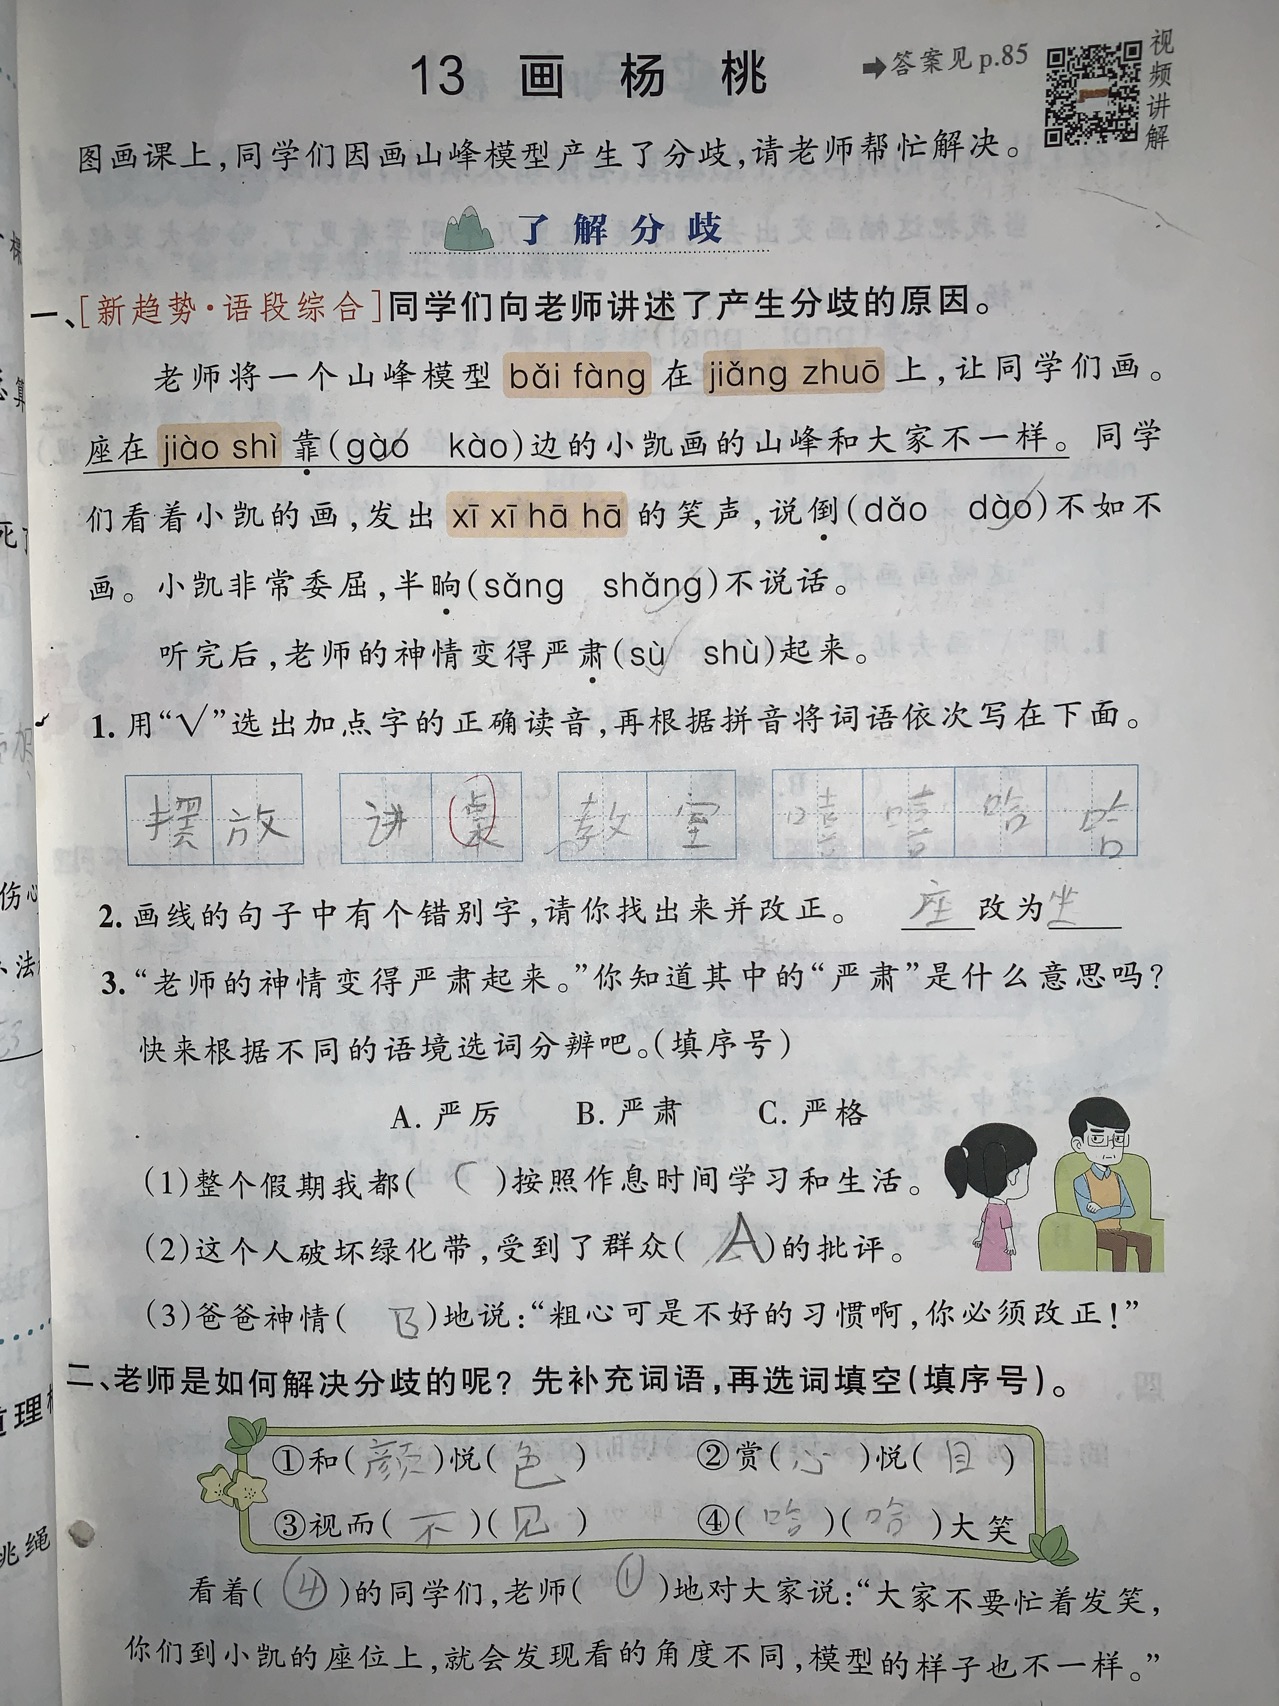 13 画 杨 桃
➡答案见p.85
视频讲解
图画课上,同学们因画山峰模型产生了分歧,请老师帮忙解决。
了解分歧
一、[新趋势·语段综合]同学们向老师讲述了产生分歧的原因。
老师将一个山峰模型 bǎi fàng 在 jiǎng zhuō 上,让同学们画。
座在 jiào shì 靠(gào kào)边的小凯画的山峰和大家不一样。同学
们看着小凯的画,发出 xī xī hā hā 的笑声,说倒(dǎo dào)不如不
画。小凯非常委屈,半晌(sǎng shǎng)不说话。
听完后,老师的神情变得严肃(sù shù)起来。
1. 用“√”选出加点字的正确读音,再根据拼音将词语依次写在下面。
摆放 讲桌 教室 嘻嘻哈哈
2. 画线的句子中有个错别字,请你找出来并改正。 座 改为 坐
3. “老师的神情变得严肃起来。”你知道其中的“严肃”是什么意思吗?
快来根据不同的语境选词分辨吧。(填序号)
A. 严厉 B. 严肃 C. 严格
(1)整个假期我都( C )按照作息时间学习和生活。
(2)这个人破坏绿化带,受到了群众( A )的批评。
(3)爸爸神情( B )地说:“粗心可是不好的习惯啊,你必须改正!”
二、老师是如何解决分歧的呢?先补充词语,再选词填空(填序号)。
①和(颜)悦(色) ②赏(心)悦(目)
③视而(不)(见) ④(哈)(哈)大笑
看着(④)的同学们,老师(①)地对大家说:“大家不要忙着发笑,
你们到小凯的座位上,就会发现看的角度不同,模型的样子也不一样。”
伤心
跳绳